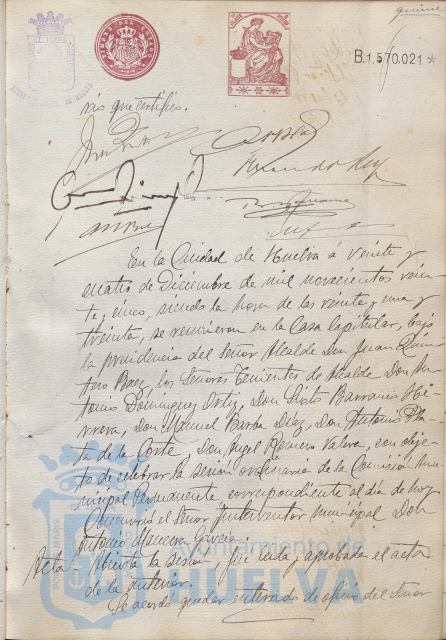 quince
B.1.570.021
rio que certifico.
Fernando Rey
En la Ciudad de Huelva á veinte y
cuatro de Diciembre de mil novecientos vein-
te y cinco, siendo la hora de las veinte y una y
treinta, se reunieron en la Casa Capitular, bajo
la presidencia del Señor Alcalde Don Juan Quin-
tero Baez, los Señores Tenientes de Alcalde Don An-
tonio Dominguez Ortiz, Don Sixto Barranco He-
rrera, Don Manuel Barba Diaz, Don Antonio Pla-
ta de la Corte y Don Angel Romero Valera, con obje-
to de celebrar la sesion ordinaria de la Comision Mu-
nicipal Permanente correspondiente al dia de hoy.
Concurrió el Señor Interventor municipal Don
Antonio Maceira Garcia.
Acta. Abierta la sesion, fué leida y aprobada el acta
de la anterior.
Se acordó quedar enterados de oficio del Señor
Ayuntamiento de
HUELVA